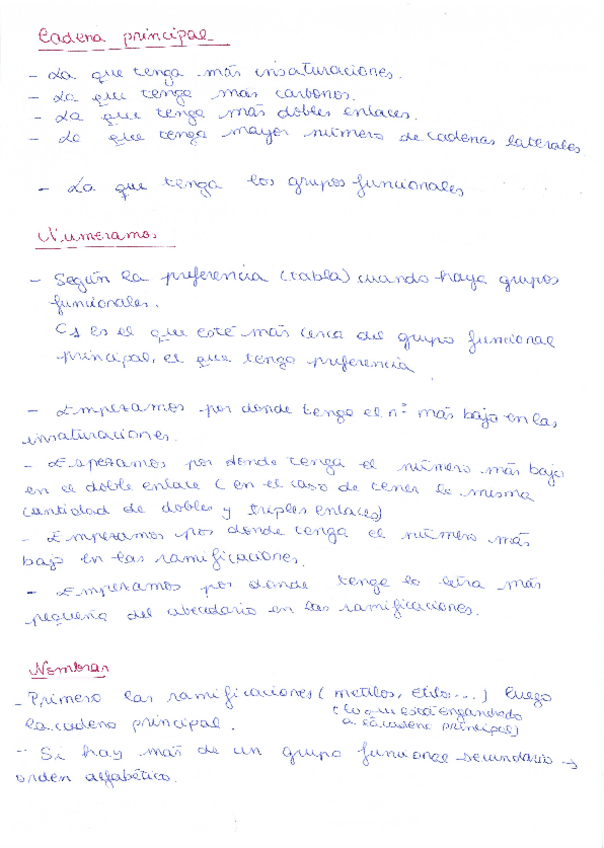 Cadena principal
- La que tenga más insaturaciones.
- La que tenga más carbonos.
- La que tenga más dobles enlaces.
- La que tenga mayor número de cadenas laterales
- La que tenga los grupos funcionales
Numeramos
- Según la preferencia (tabla) cuando haya grupos
funcionales.
C1 es el que esté más cerca del grupo funcional
principal, el que tenga preferencia
- Empezamos por donde tenga el nº más bajo en las
insaturaciones.
- Espezamos por donde tenga el número más bajo
en el doble enlace (en el caso de tener la misma
cantidad de dobles y triples enlaces)
- Empezamos por donde tenga el número más
bajo en las ramificaciones.
- Empezamos por donde tenga la letra más
pequeña del abecedario en las ramificaciones.
Nombrar
- Primero las ramificaciones (metilos, etilo...) luego
la cadena principal. (lo que está enganchado
a la cadena principal)
- Si hay más de un grupo funcional secundario →
orden alfabético.